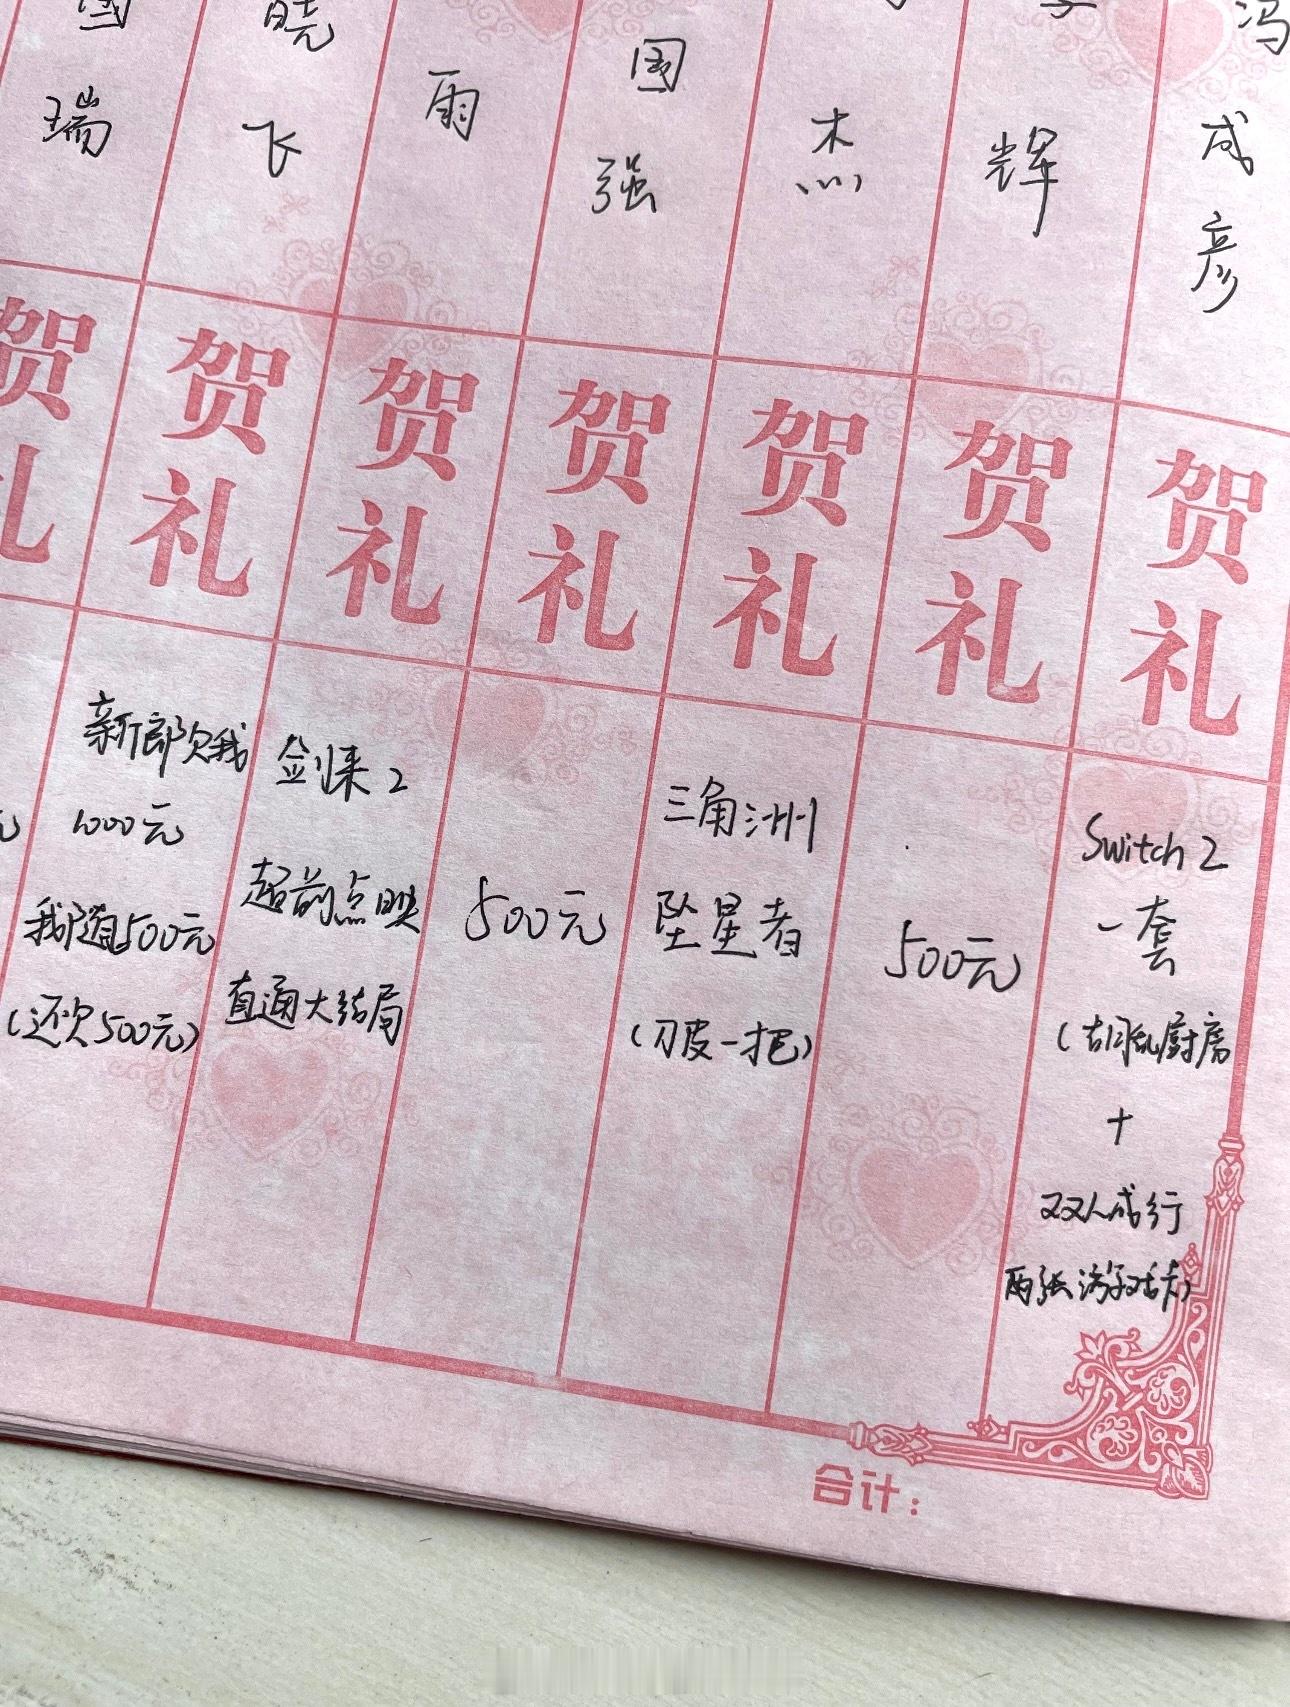 冯
成
彦
贺
礼
Switch 2
一套
(胡闹厨房
+
双人成行
两张游戏卡)
辉
贺
礼
500元
杰
贺
礼
三角洲
坠星者
(刀皮一把)
国
强
贺
礼
500元
雨
贺
礼
剑来2
超前点映
直通大结局
晓
飞
贺
礼
新郎欠我
1000元
我随500元
(还欠500元)
国
瑞
贺
礼
元
合计：